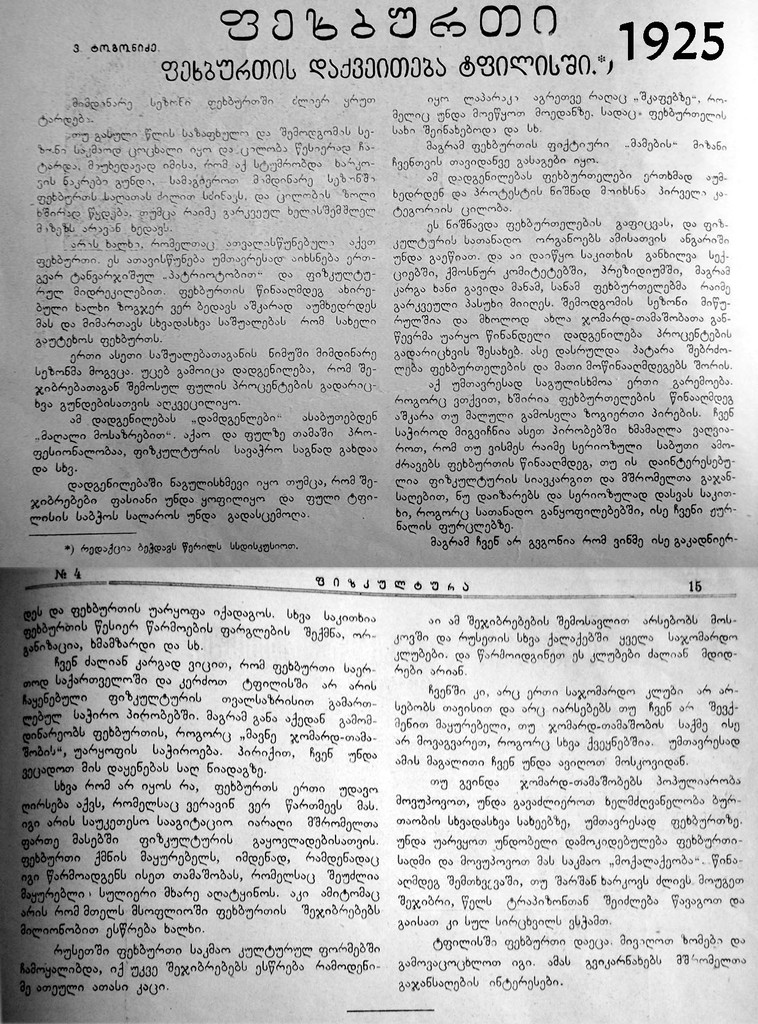 ფეხბურთი
1925
ვ. ტოგონიძე.
ფეხბურთის დაქვეითება ტფილისში.*)
მიმდინარე სეზონი ფეხბურთში ძლიერ ყრუთ
ტარდება.
თუ გასული წლის საზაფხულო და შემოდგომის სე-
ზონი საკმაოდ ცოცხალი იყო და ცილობა წესიერად ჩა-
ტარდა, მიუხედავად იმისა, რომ აქ სტუმრობდა ხარკო-
ვის ნაკრები გუნდი, სამაგიეროთ მიმდინარე სეზონში
ფეხბურთს საღათას ძილით სძინავს, და ცილობის ზოლი
ხშირად წყდება, თუმცა რაიმე გარკვეულ ხელისშემშლელ
მიზეზს არავინ ხედავს.
არის ხალხი, რომელთაც ათვალისწუნებული აქვთ
ფეხბურთი. ეს ათავისწუნება უმთავრესად აიხსნება ერთ-
გვარ ტანვარჯიშულ „პატრიოტობით“ და ფიზკულტუ-
რულ მიდრეკილებით. ფეხბურთის წინააღმდეგ ახირე-
ბული ხალხი ზოგჯერ ვერ ბედავს აშკარად აუმხედრდეს
მას და მიმართავს სხვადასხვა საშუალებას რომ სახელი
გაუტეხოს ფეხბურთს.
ერთი ასეთი საშუალებათაგანის ნიმუში მიმდინარე
სეზონმა მოგვცა. უცებ გამოიცა დადგენილება, რომ შე-
ჯიბრებათაგან შემოსულ ფულის პროცენტების გადარიც-
ხვა გუნდებისათვის აღკვეცილიყო.
ამ დადგენილებას „დამდგენლები“ ასაბუთებდენ
„მაღალი მოსაზრებით“. აქაო და ფულზე თამაში პრო-
ფესიონალობაა, ფიზკულტურის სავაჭრო საგნად გახდაა
და სხვ.
დადგენილებაში ნაგულისხმევი იყო თუმცა, რომ შე-
ჯიბრებები ფასიანი უნდა ყოფილიყო და ფული ტფი-
ლისის საბჭოს სალაროს უნდა გადასცემოდა.
*) რედაქცია ბეჭდავს წერილს სსდისკუსიოთ.
იყო ლაპარაკი აგრეთვე რაღაც „შკაფებზე“, რო-
მელიც უნდა მოეწყოთ მოედანზე, სადაც ფეხბურთელის
სახი შეინახებოდა და სხ.
მაგრამ ფეხბურთის ფიქტიური „მამების“ მიზანი
ჩვენთვის თავიდანვე გასაგები იყო.
ამ დადგენილებას ფეხბურთელები ერთხმად აუმ-
ხედრდენ და პროტესტის ნიშნად მოიხსნა პირველი კა-
ტეგორიის ცილობა.
ეს ნიშნავდა ფეხბურთელების გაფიცვას, და ფიზ-
კულტურის სათანადო ორგანოებს ამისათვის ანგარიში
უნდა გაეწიათ. და აი დაიწყო საკითხის განხილვა სექ-
ციებში, ქმოსნურ კომიტეტებში, პრეზიდიუმში, მაგრამ
კარგა ხანი გავიდა მანამ, სანამ ფეხბურთელებმა რაიმე
გარკვეული პასუხი მიიღეს. შემოდგომის სეზონი მიწუ-
რულშია და მხოლოდ ახლა ჯომარდ-თამაშობათა გან-
წევრმა უარყო წინანდელი დადგენილება პროცენტების
გადარიცხვის შესახებ. ასე დასრულდა პატარა შებრძო-
ლება ფეხბურთელების და მათი მოწინააღმდეგებს შორის.
აქ უმთავრესად საგულისხმოა ერთი გარემოება.
როგორც ვთქვით, ხშირია ფეხბურთელების წინააღმდეგ
აშკარა თუ მალული გამოსვლა ზოგიერთი პირების. ჩვენ
საჭიროდ მიგვიჩნია ასეთ პირობებში ხმამაღლა ვაღვია-
როთ, რომ თუ ვისმეს რაიმე სერიოზული საბუთი ამო-
ძრავებს ფეხბურთის წინააღმდეგ, თუ ის დაინტერესებუ-
ლია ფიზკულტურის სიავკარგით და მშრომელთა გაჯან-
საღებით, ნუ დაიზარებს და სერიოზულად დასვას საკით-
ხი, როგორც სათანადო განყოფილებებში, ისე ჩვენი ჟურ-
ნალის ფურცლებზე.
მაგრამ ჩვენ არ გვგონია რომ ვინმე ისე გაკადნიერ-
№ 4
ფიზკულტურა
15
დეს და ფეხბურთის უარყოფა იქადაგოს. სხვა საკითხია
ფეხბურთის წესიერ წარმოების ფარგლების შექმნა, ორ-
განიზაცია, ხმამზარდი და სხ.
ჩვენ ძალიან კარგად ვიცით, რომ ფეხბურთი საერ-
თოდ საქართველოში და კერძოთ ტფილისში არ არის
ჩაყენებული ფიზკულტურის თვალსაზრისით გამართ-
ლებულ საჭირო პირობებში. მაგრამ განა აქედან გამომ-
დინარეობს ფეხბურთის, როგორც „მავნე ჯომარდ-თამა-
შობის“, უარყოფის საჭიროება. პირიქით, ჩვენ უნდა
ვეცადოთ მის დაყენებას საღ ნიადაგზე.
სხვა რომ არ იყოს რა, ფეხბურთს ერთი უდავო
ღირსება აქვს, რომელსაც ვერავინ ვერ წართმევს მას.
იგი არის საუკეთესო სააგიტაციო იარაღი მშრომელთა
ფართე მასებში ფიზკულტურის გაყოვლადებისათვის.
ფეხბურთი ქმნის მაყურებელს, იმდენად, რამდენადაც
იგი წარმოადგენს ისეთ თამაშობას, რომელსაც შეუძლია
მაყურებლი სულიერი მხარე აღატყინოს. აკი ამიტომაც
არის რომ მთელს მსოფლიოში ფეხბურთის შეჯიბრებებს
მილიონობით ესწრება ხალხი.
რუსეთში ფეხბურთი საკმაო კულტურულ ფორმებში
ჩამოყალიბდა, იქ უკვე შეჯიბრებებს ესწრება რამოდენი-
მე ათეული ათასი კაცი.
აი ამ შეჯიბრებების შემოსავლით არსებობს მოს-
კოვში და რუსეთის სხვა ქალაქებში ყველა საჯომარდო
კლუბები. და წარმოიდგინეთ ეს კლუბები ძალიან მდიდ-
რები არიან.
ჩვენში კი, არც ერთი საჯომარდო კლუბი არ არ-
სებობს თავისით და არც იარსებებს თუ ჩვენ არ შევქ-
მენით მაყურებელი, თუ ჯომარდ-თამაშობის საქმე ისე
არ მოვაგვარეთ, როგორც სხვა ქვეყნებშია. უმთავრესად
ამის მაგალითი ჩვენ უნდა ავიღოთ მოსკოვიდან.
თუ გვინდა ჯომარდ-თამაშობებს პოპულიარობა
მოვუპოვოთ, უნდა გავაძლიეროთ ხელმძღვანელობა ბურ-
თაობის სხვადასხვა სახეებზე, უმთავრესად ფეხბურთზე.
უნდა უარვყოთ უნდობელი დამოკიდებულება ფეხბურთი-
სადმი და მოვუპოვოთ მას საკმაო „მოქალაქეობა“. წინა-
აღმდეგ შემთხვევაში, თუ შარშან ხარკოვს ძლივს მოუგეთ
შეჯიბრი, წელს ტრაპიზონთან შეიძლება წავაგოთ და
გაისათ კი სულ სირცხვილს ვსჭამთ.
ტფილისში ფეხბურთი დაეცა. მივიღოთ ზომები და
გამოვაცოცხლოთ იგი. ამას გვიკარნახებს მშრომელთა
გაჯანსაღების ინტერესები.